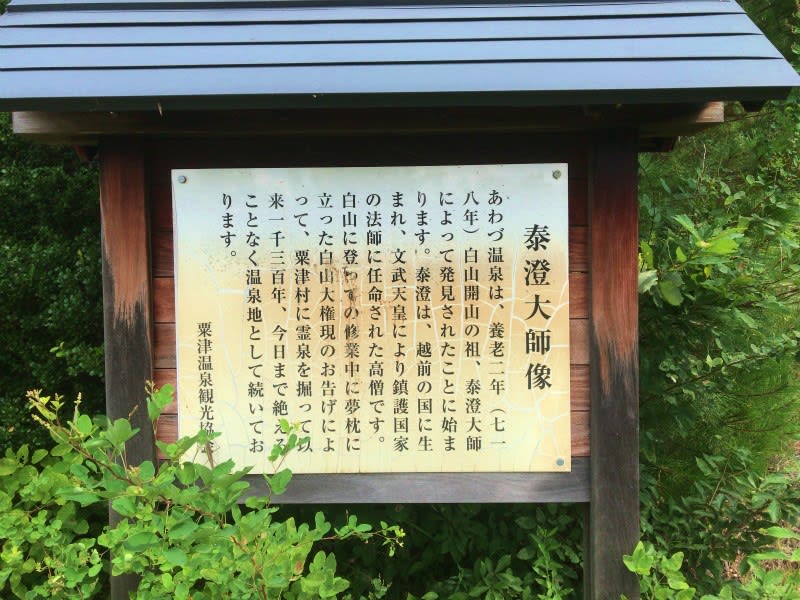 泰澄大師像
あわづ温泉は、養老二年（七一
八年）白山開山の祖、泰澄大師
によって発見されたことに始ま
ります。泰澄は、越前の国に生
まれ、文武天皇により鎮護国家
の法師に任命された高僧です。
白山に登っての修業中に夢枕に
立った白山大権現のお告げによ
って、粟津村に霊泉を掘って以
来一千三百年、今日まで絶える
ことなく温泉地として続いてお
ります。
粟津温泉観光協